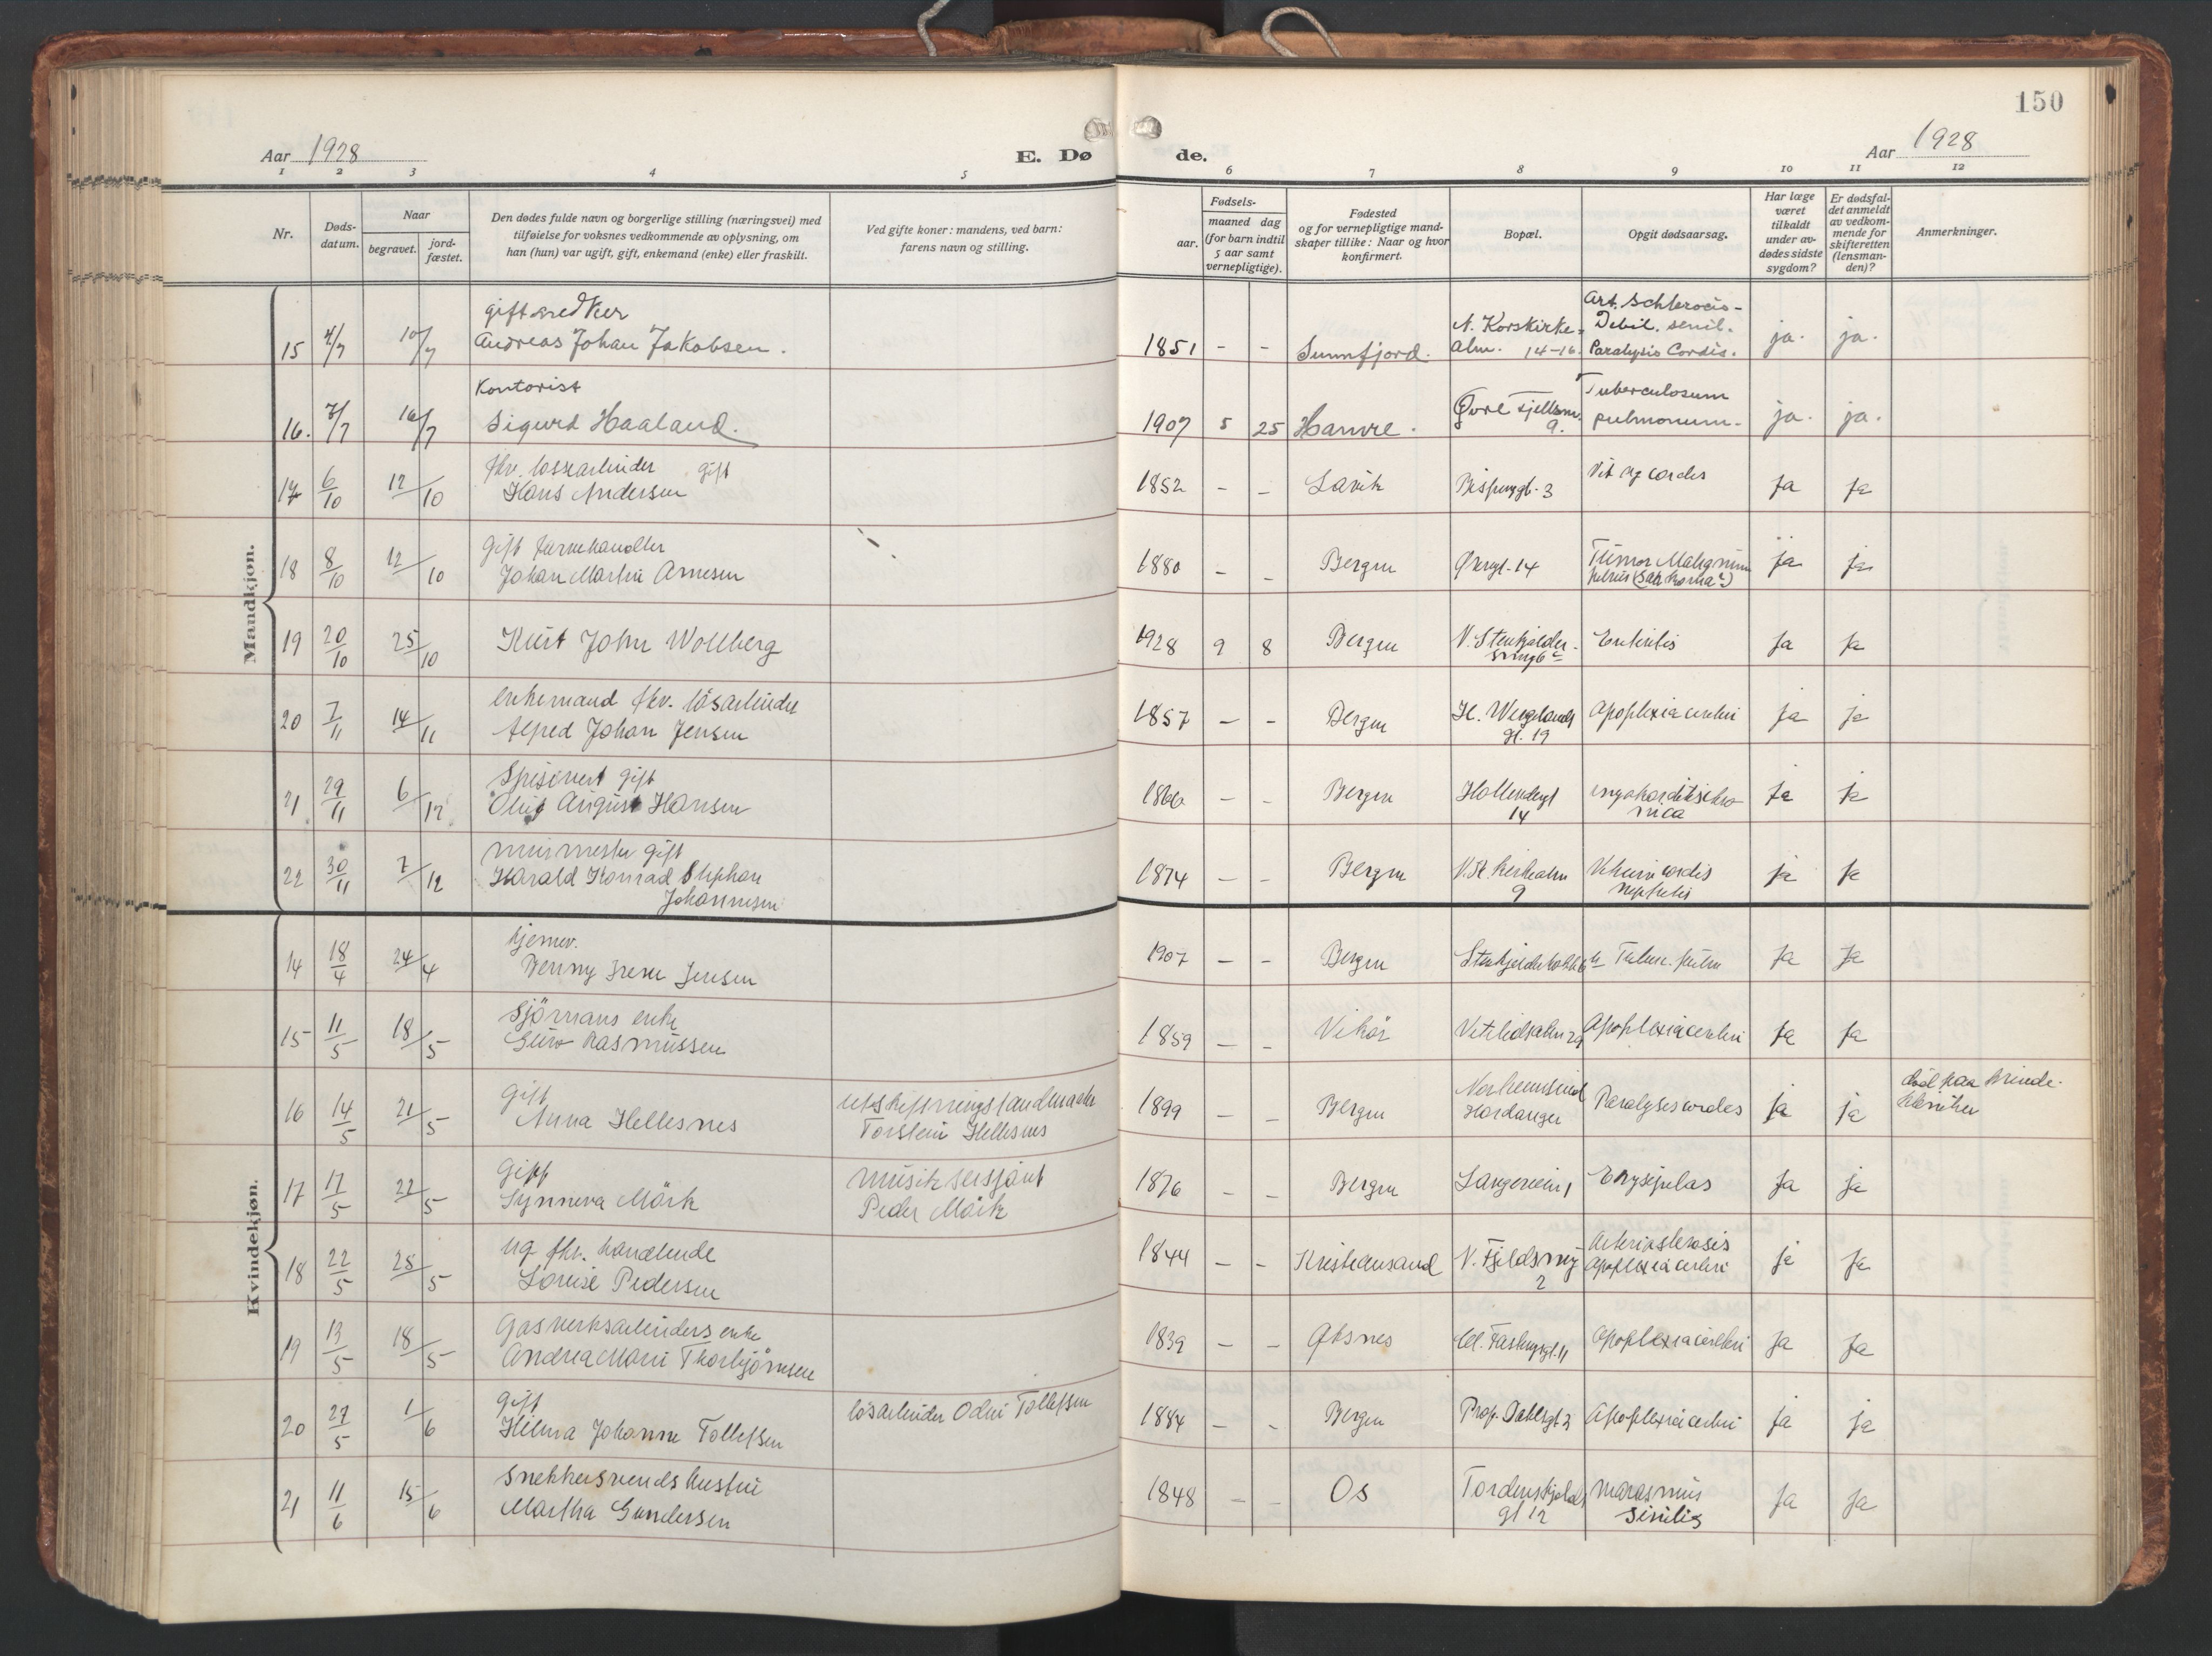 150
Aar 1928
E. Dø de.
Aar 1928
1 2 3 4 5 6 7 8 9 10 11 12
Nr.
Døds-
datum.
Naar
begravet.
jord-
fæstet.
Den dødes fulde navn og borgerlige stilling (næringsvei) med
tilføielse for voksnes vedkommende av oplysning, om
han (hun) var ugift, gift, enkemand (enke) eller fraskilt.
Ved gifte koner: mandens, ved barn:
farens navn og stilling.
Fødsels-
aar.
maaned dag
(for barn indtil
5 aar samt
vernepligtige).
Fødested
og for vernepligtige mand-
skaper tillike: Naar og hvor
konfirmert.
Bopæl.
Opgit dødsaarsag.
Har læge
været
tilkaldt
under av-
dødes sidste
sygdom?
Er dødsfal-
det anmeldt
av vedkom-
mende for
skifteretten
(lensman-
den)?
Anmerkninger.
Mandkjøn.
gift
Art. Schlerocis-
15 4/7 10/7 Andreas Johan Jakobsen. 1851 - - Sunnfjord. N. Korskirke- Debil. senil. ja. ja.
Alm. 14-16. Paralysis Cordis.
Kontorist
Tuberculosum
16. 7/7 16/7 Sigurd Haaland. 1907 5 25 Hamre. Øvre Fjellsm. 9. pulmonum. ja. ja.
fhv. gift
17 6/10 12/10 Hans Andersen 1852 - - Lavik Bispenggt. 3 Vit org cordis ja ja
Gift farvehandler
18 8/10 12/10 Johan Martin Arnesen 1880 - - Bergen 14 Tumor Malignum ja ja
19 20/10 25/10 Kurt John Wollberg 1928 9 8 Bergen V. Stenkjelder- Enteritis ja ja
enkemand fhv. løsarbeider
20 7/11 14/11 Alfred Johan Jensen 1857 - - Bergen H. Wergelands Apoplexia cerebri ja ja
gt. 19
Spisevert gift
21 29/11 6/12 Oluf August Hansen 1866 - - Bergen Hollendergt 14 myokarditis chro- ja ja
nica
murmester gift
22 30/11 7/12 Harald Konrad Stephan 1874 - - Bergen 9 Vitium cordis ja ja
Johannesen nephritis
Kvindekjøn.
hjemv.
14 18/4 24/4 Jenny Irene Jensen 1907 - - Bergen Tuberc. pulm ja ja
Sjømans enke
15 11/5 18/5 Guro Rasmussen 1859 - - Vikør Apoplexia cerebri ja ja
Gift utskiftningslandmaaler
16 14/5 21/5 Anna Hellesnes Torstein Hellesnes 1899 - Bergen Norheimsund Paralyses cordes ja ja død paa kvinde-
Hardanger klinikken
Gift musik sersjant
17 17/5 22/5 Synneva Mörk Peder Mörk 1876 - - Bergen Langeveien 1 Erysipelas ja ja
ug fhv. handlende Arteriosklerosis
18 22/5 25/5 Lovise Pedersen 1844 - - Kristiansand V. Fjeldsmug 2 Apoplexia cerebri ja ja
Gasverksarbeiders enke
19 13/5 18/5 Andrea Marie Thorbjörnsen 1839 - - Øksnes 11 Apoplexia cerebri ja ja
Gift løsarbeider Odin Tollefsen
20 27/5 1/6 Hilma Johanne Tollefsen 1884 - - Bergen Prof. Dahlsgt 3 Apoplexia cerebri ja ja
Snekkersvends hustru
21 11/6 15/6 Martha Gundersen 1848 - - Os Tordenskjolds Marasmus ja ja
gt 12 sinilis